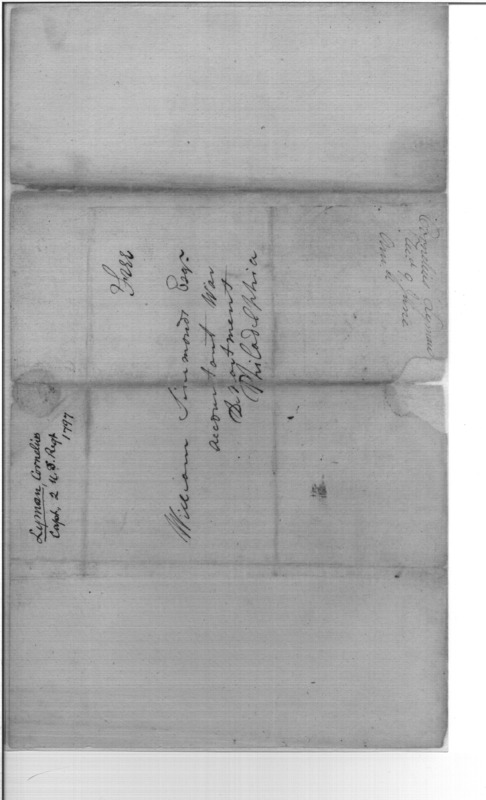 Lyman, Cornelius
Capt, 2 U.S. Regt
1797
Free
William Simmonds Esqr
accountant War
Department
Philadelphia
Cornelius Lyman